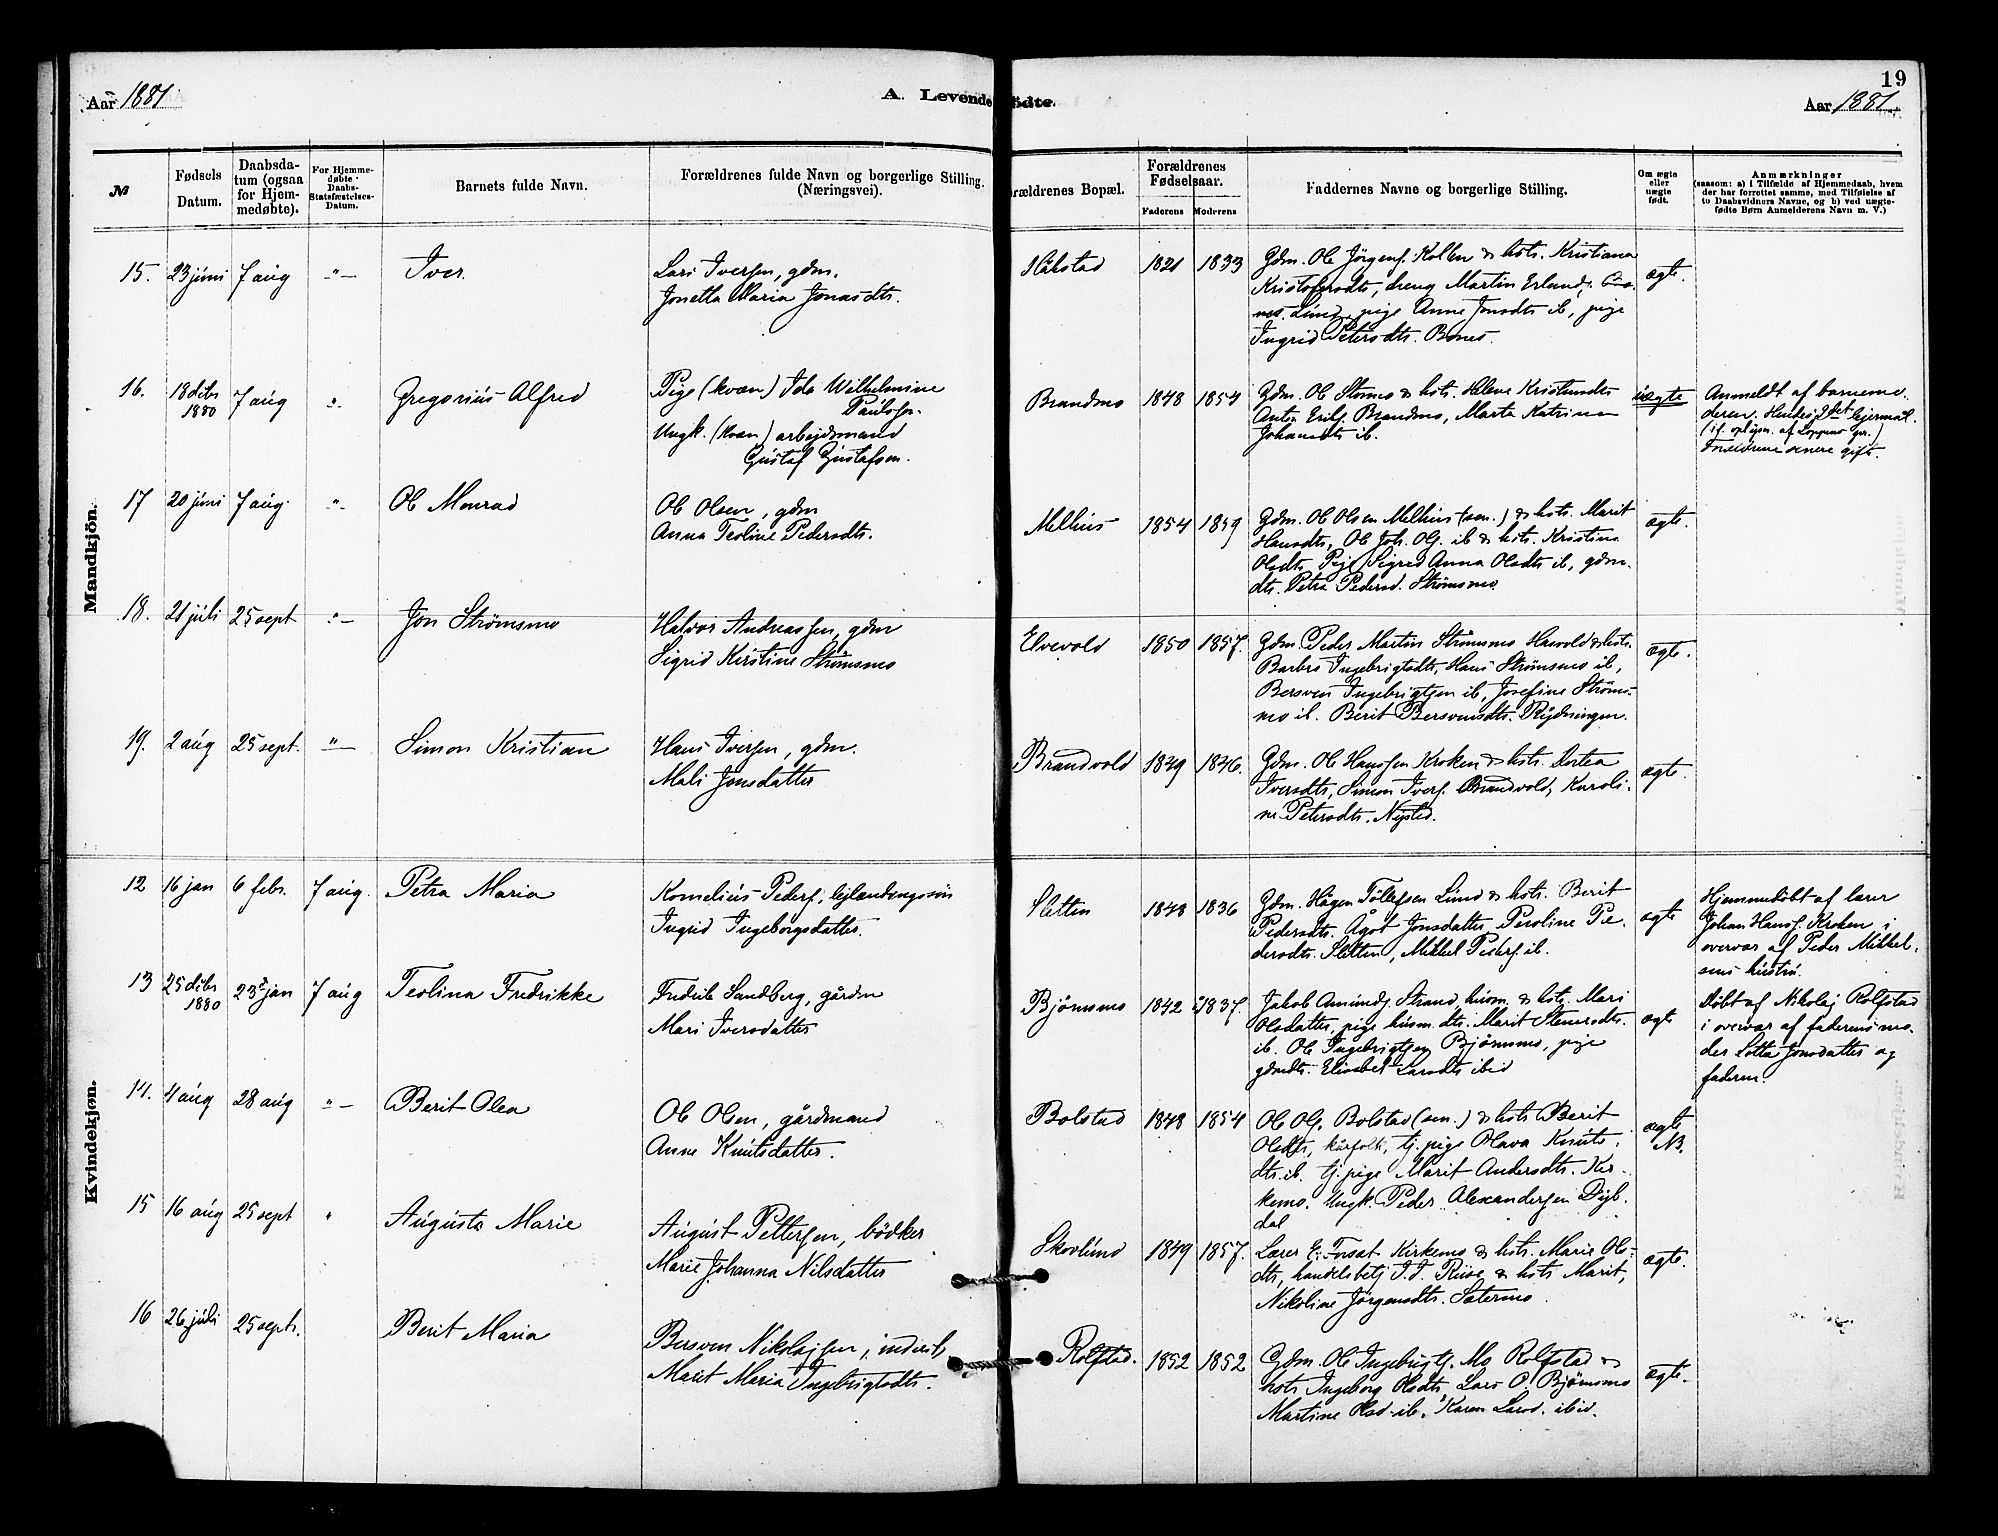 Aar 1881
A. Levendefödte.
Aar 1881.
19
№
Fødsels Datum.
Daabsdatum (ogsaa for Hjemmedøbte).
For Hjemmedøbte Daabs-Statsfæstelses-Datum.
Barnets fulde Navn.
Forældrenes fulde Navn og borgerlige Stilling. (Næringsvei).
Forældrenes Bopæl.
Forældrenes Fødselsaar.
Faderens
Moderens
Faddernes Navne og borgerlige Stilling.
Om ægte eller uægte født.
Anmærkninger
(saasom: a) i Tilfælde af Hjemmedaab, hvem
der har forrettet samme, med Tilføielse af
to Daabsvidners Navne, og b) ved uægte-
fødte Børn Anmelderens Navn m. V.)
Mandkjön.
15. 23 juni 7 aug -"- Iver.
Lars Iversen, gdm.
Jonetta Maria Jonasdtr.
Håkstad 1821 1833
Gdm. Ole Jörgens. Kolben & hstr. Kristiana
Kristofersdtr, dreng Martin Erlands.
Lund, pige Anne Jonsdtr ib, pige
Ingrid Petersdtr. Bones.
ægte.
16. 18 decbr 1880 7 aug " Gregorius Alfred
Pige (kvæn) Ida Wilhelmine
Paulosn.
Ungk. (kvæn) arbejdsmand
Gustaf Gustafsen.
Brandmo 1848 1854
Gdm. Ole Stormo & hstr. Helene Kristundtr
Anton Eriks. Brandmo, Marta Katrina
Johansdtr ib.
uægte
Anmeldt af barnemo-
deren. Hendes 2det lejermål.
(if. oplysn. af Loppens pr.)
Forældrene senere gift.
17 20 juni 7 aug. -"- Ole Monrad
Ole Olsen, gdm
Anna Teoline Pedersdtr.
Melhus 1854 1859
Gdm. Ole Olsen Melhus (sen.) & hstr. Marit
Hansdtr, Ole Joh. Ols. ib & hstr. Kristine
Olsdtr, Pige Sigrid Anna Olsdtr ib, gdm.
dtr. Petra Pedersd. Strömsmo.
ægte.
18. 21 juli 25 sept -"- Jon Strömsmo
Halvor Andreassen, gdm
Sigrid Kirstine Strömsmo
Elvevold 1850 1857.
Gdm. Peder Martin Strömsmo Hanvold & hstr.
Barbro Ingebrigtsdtr, Hans Strömsmo ib,
Bersven Ingebrigtsen ib, Josefine Ströms-
mo ib. Berit Bersvensdtr. Rydningen.
ægte.
19. 2 aug 25 sept. " Simon Kristian
Hans Iversen, gdm.
Mali Jonsdatter
Brandvold 1849 1846.
Gdm. Ole Hanssen Kroken & hstr. Dortea
Iversdtr, Simon Ivers. Brandvold, Karoli-
ne Petersdtr. Nysted.
ægte.
Kvindekjøn.
12 16 jan 6 febr. 7 aug. Petra Maria
Kornelius Peders., lejlændingssön
Ingrid Ingeborgsdatter.
Sletten 1848 1836
Gdm. Hågen Tollefsen Lund & hstr. Berit
Pedersdtr. Ågot Jonsdatter Peroline Pe-
dersdtr. Sletten, Mikkel Peders. ib.
ægte
Hjemmedöbt af lærer
Johan Hans. Kroken i
overvær af Peder Mikkel-
sens hustru.
13 25 decbr 1880 23 jan 7 aug Teolina Fredrikke
Fredrik Sandberg, gårdm
Mari Iversdatter
Björnsmo 1842 1837.
Jakob Amunds. Strand, husm. & hstr. Mari
Olsdatter, pige husm. dtr. Marit Stensrsdtr.
ib. Ole Ingebrigtsen Björnsmo, pige
gdmdtr. Elisabet Larsdtr ibid
ægte
Döbt af Nikolaj Rolfstad
i overvær af faderens mo-
der Lotta Jonsdatter og
faderen.
14. 4 aug 28 aug -"- Berit Olea
Ole Olsen, gårdmand
Anne Knutsdatter.
Bolstad 1848 1854
Ole Ols. Bolstad (sen.) & hstr Berit
Olsdtr, kårfolk, tj. pige Olava Knuts-
dtr. ib. tj. pige Marit Andersdtr. Kir-
kemo. Ungk. Peder Alexandersen Dyb-
dal
ægte
NB.
15 16 aug 25 sept " Augusta Marie
August Pettersen, bödker
Marie Johanna Nilsdatter
Skovlund 1849 1857.
Lærer E. Forsæt Kirkemo & hstr. Marie Ols-
dtr, handelsbetj I. I. Riise & hstr Marit,
Nikoline Jörgensdtr. Sætermo.
ægte.
16 26 juli 25 septr. Berit Maria
Bersven Nikolajsen, inderst,
Marit Maria Ingebrigtsdtr.
Rolfstad. 1852 1852
Gdm. Ole Ingebrigts. Mo, Rolfstad &
hstr Ingeborg Olsdtr, Lars P. Björnsmo
Martine Olsd. ib. Karen Larsd. ibid.
ægte.